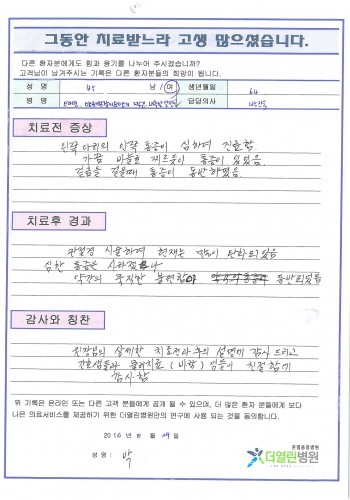 그동안 치료받느라 고생 많으셨습니다.
다른 환자분에게도 힘과 용기를 나누어 주시겠습니까?
고객님이 남겨주시는 기록은 다른 환자분들의 희망이 됩니다.
성 명 박 남 / 여 생년월일 64
병 명 담당의사
치료전 증상
왼쪽 다리의 안쪽 통증이 심하여 진료함
가끔 바늘로 찌르듯이 통증이 있었음
걸음을 걸을때 통증이 동반하였음.
치료후 경과
관절경 시술하여 현재는 많이 완화되었음
심한 통증은 사라졌으나
약간의 묵직한 불편함이 동반되었음
감사와 칭찬
원장님의 상세한 치료전과후의 설명에 감사드리고
간호샘들과 물리치료 (바람) 샘들이 친절함에
감사함
위 기록은 온라인 또는 다른 고객 분들에게 공개 될 수 있으며, 더 많은 환자 분들에게 보다
나은 의료서비스를 제공하기 위한 더열린병원만의 연구에 사용 되는 것을 동의합니다.
2016 년 8 월 29 일
성 명 : 박
관절중점병원
더열린병원